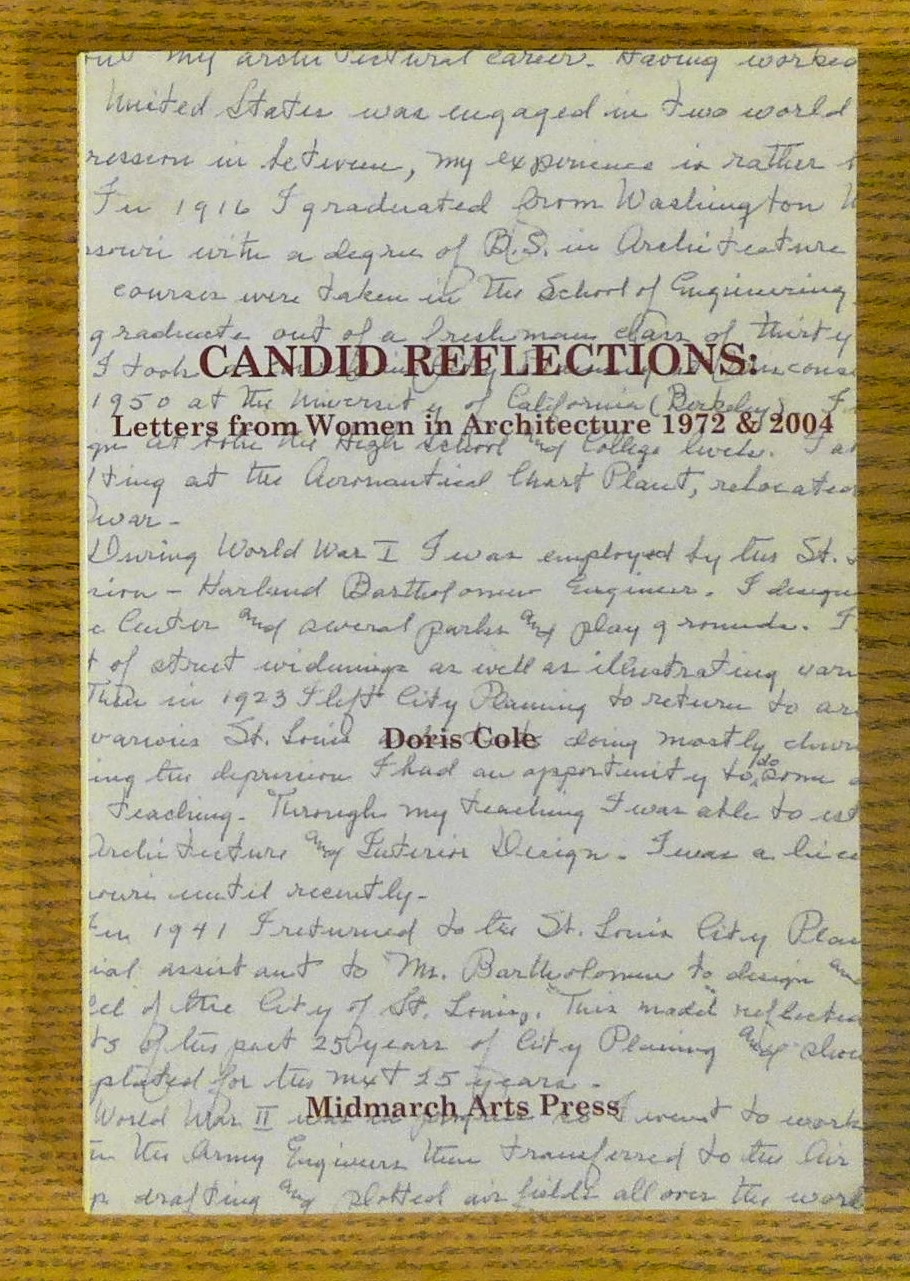 my architectural career. Having worked
United States was engaged in two world
ression in between, my experience is rather
In 1916 I graduated from Washington
ssouri with a degree of B.S. in Architecture
courses were taken in the School of Engineering.
graduate out of a freshman class of thirty
CANDID REFLECTIONS:
I took
1950 at the University of California (Berkeley).
Letters from Women in Architecture 1972 & 2004
at both the High School and College levels.
ting at the Aeronautical Chart Plant, relocated
war-
During World War I I was employed by the St.
sion - Harland Bartholomew Engineer. I design
Center and several parks and play grounds. I
t of street widenings as well as illustrating
Then in 1923 I left City Planning to return to
various St. Louis
Doris Cole
doing mostly
ing the depression I had an opportunity to do some
teaching. Through my teaching I was able to
Architecture and Interior Design. I was a
ouri until recently-
In 1941 I returned to the St. Louis City Plan
ial assistant to Mr. Bartholomew to design and
el of the City of St. Louis. This model reflected
ts of the past 25 years of City Planning and
plated for the next 25 years.
Midmarch Arts Press
World War II was in progress so I went to work
in the Army Engineers then transferred to the Air
drafting and plotted air fields all over the world